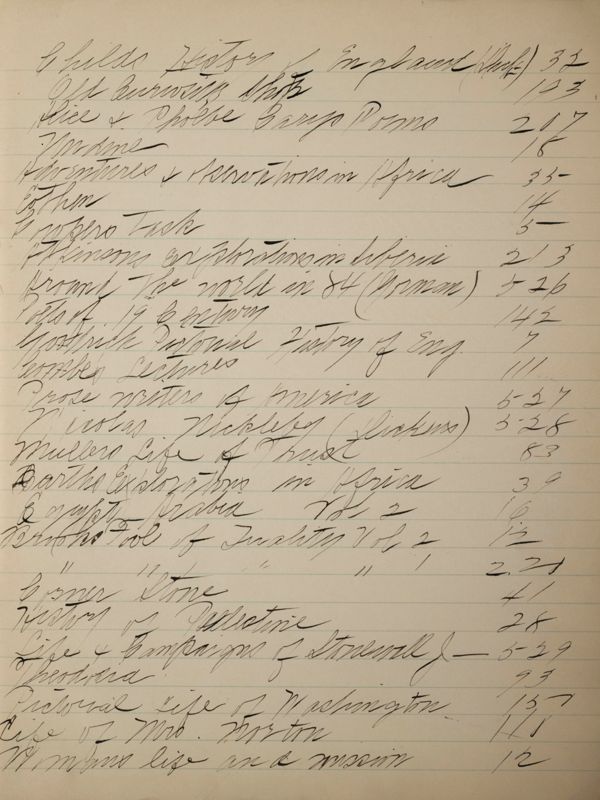 Childs History of England (Dick) 32
Old Curiosity Shop 123
Alice & Phoebe Carys Poems 207
18
Adventures & Observations in Africa 35
Eothen 14
Task 5
Explorations in Liberia 213
Around The world in 84 (Norman) 526
Poets of 19 Century 142
Goodrich Pictorial History of Eng. 7
Lectures 111
Prose writers of America 527
Nicolas Nickleby (Dickens) 528
Mullers Life of Trust 83
Barths Explorations in Africa 39
Egypt, Arabia Vol 2 16
Brooks Fool of Quality Vol 2 12
" " " " 1 221
Corner Stone 41
History of Palestine 28
Life & Campaigns of Stonewall J— 529
Theodocia 93
Pictorial Life of Washington 157
Life of Mrs. Norton 111
Womans life and mission 12